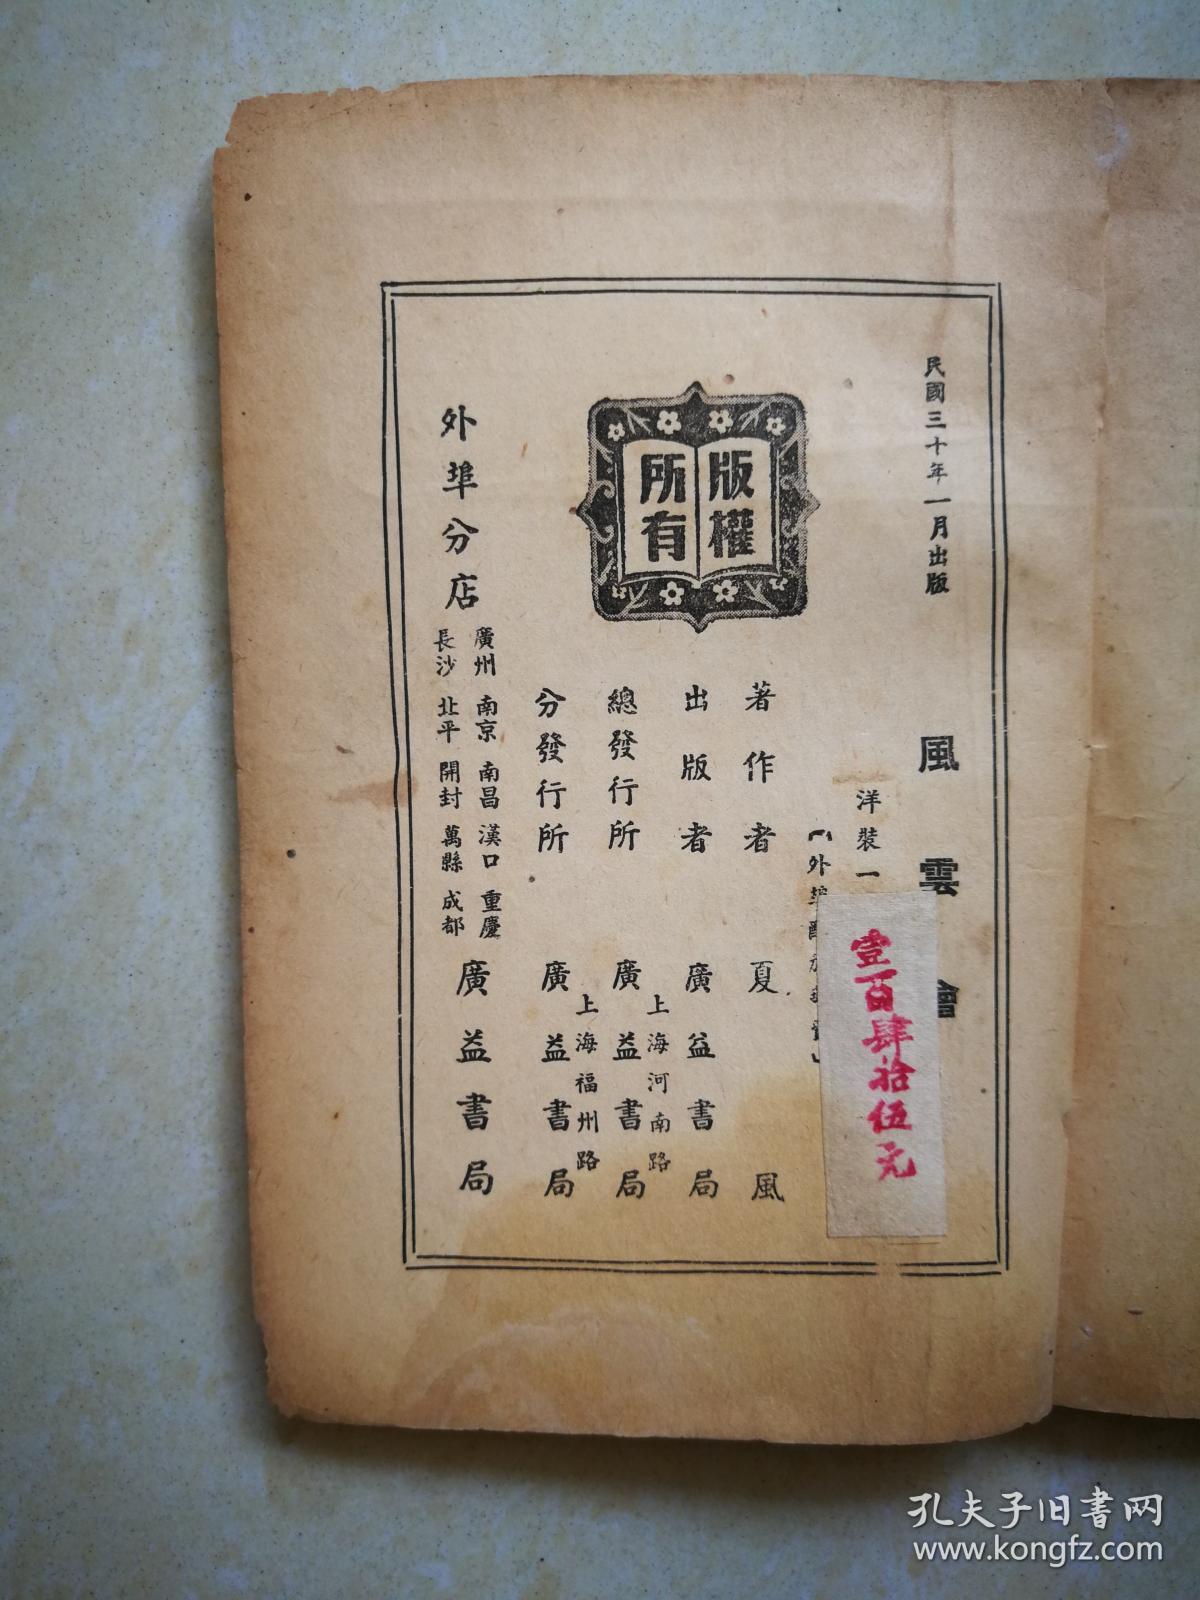 民國三十年一月出版
風雲
洋裝一
外埠
壹百肆拾伍元
版權
所有
著作者 夏風
出版者 廣益書局
上海河南路
總發行所 廣益書局
上海福州路
分發行所 廣益書局
外埠分店
廣州 南京 南昌 漢口 重慶
長沙 北平 開封 萬縣 成都
廣益書局
孔夫子旧书网
www.kongfz.com